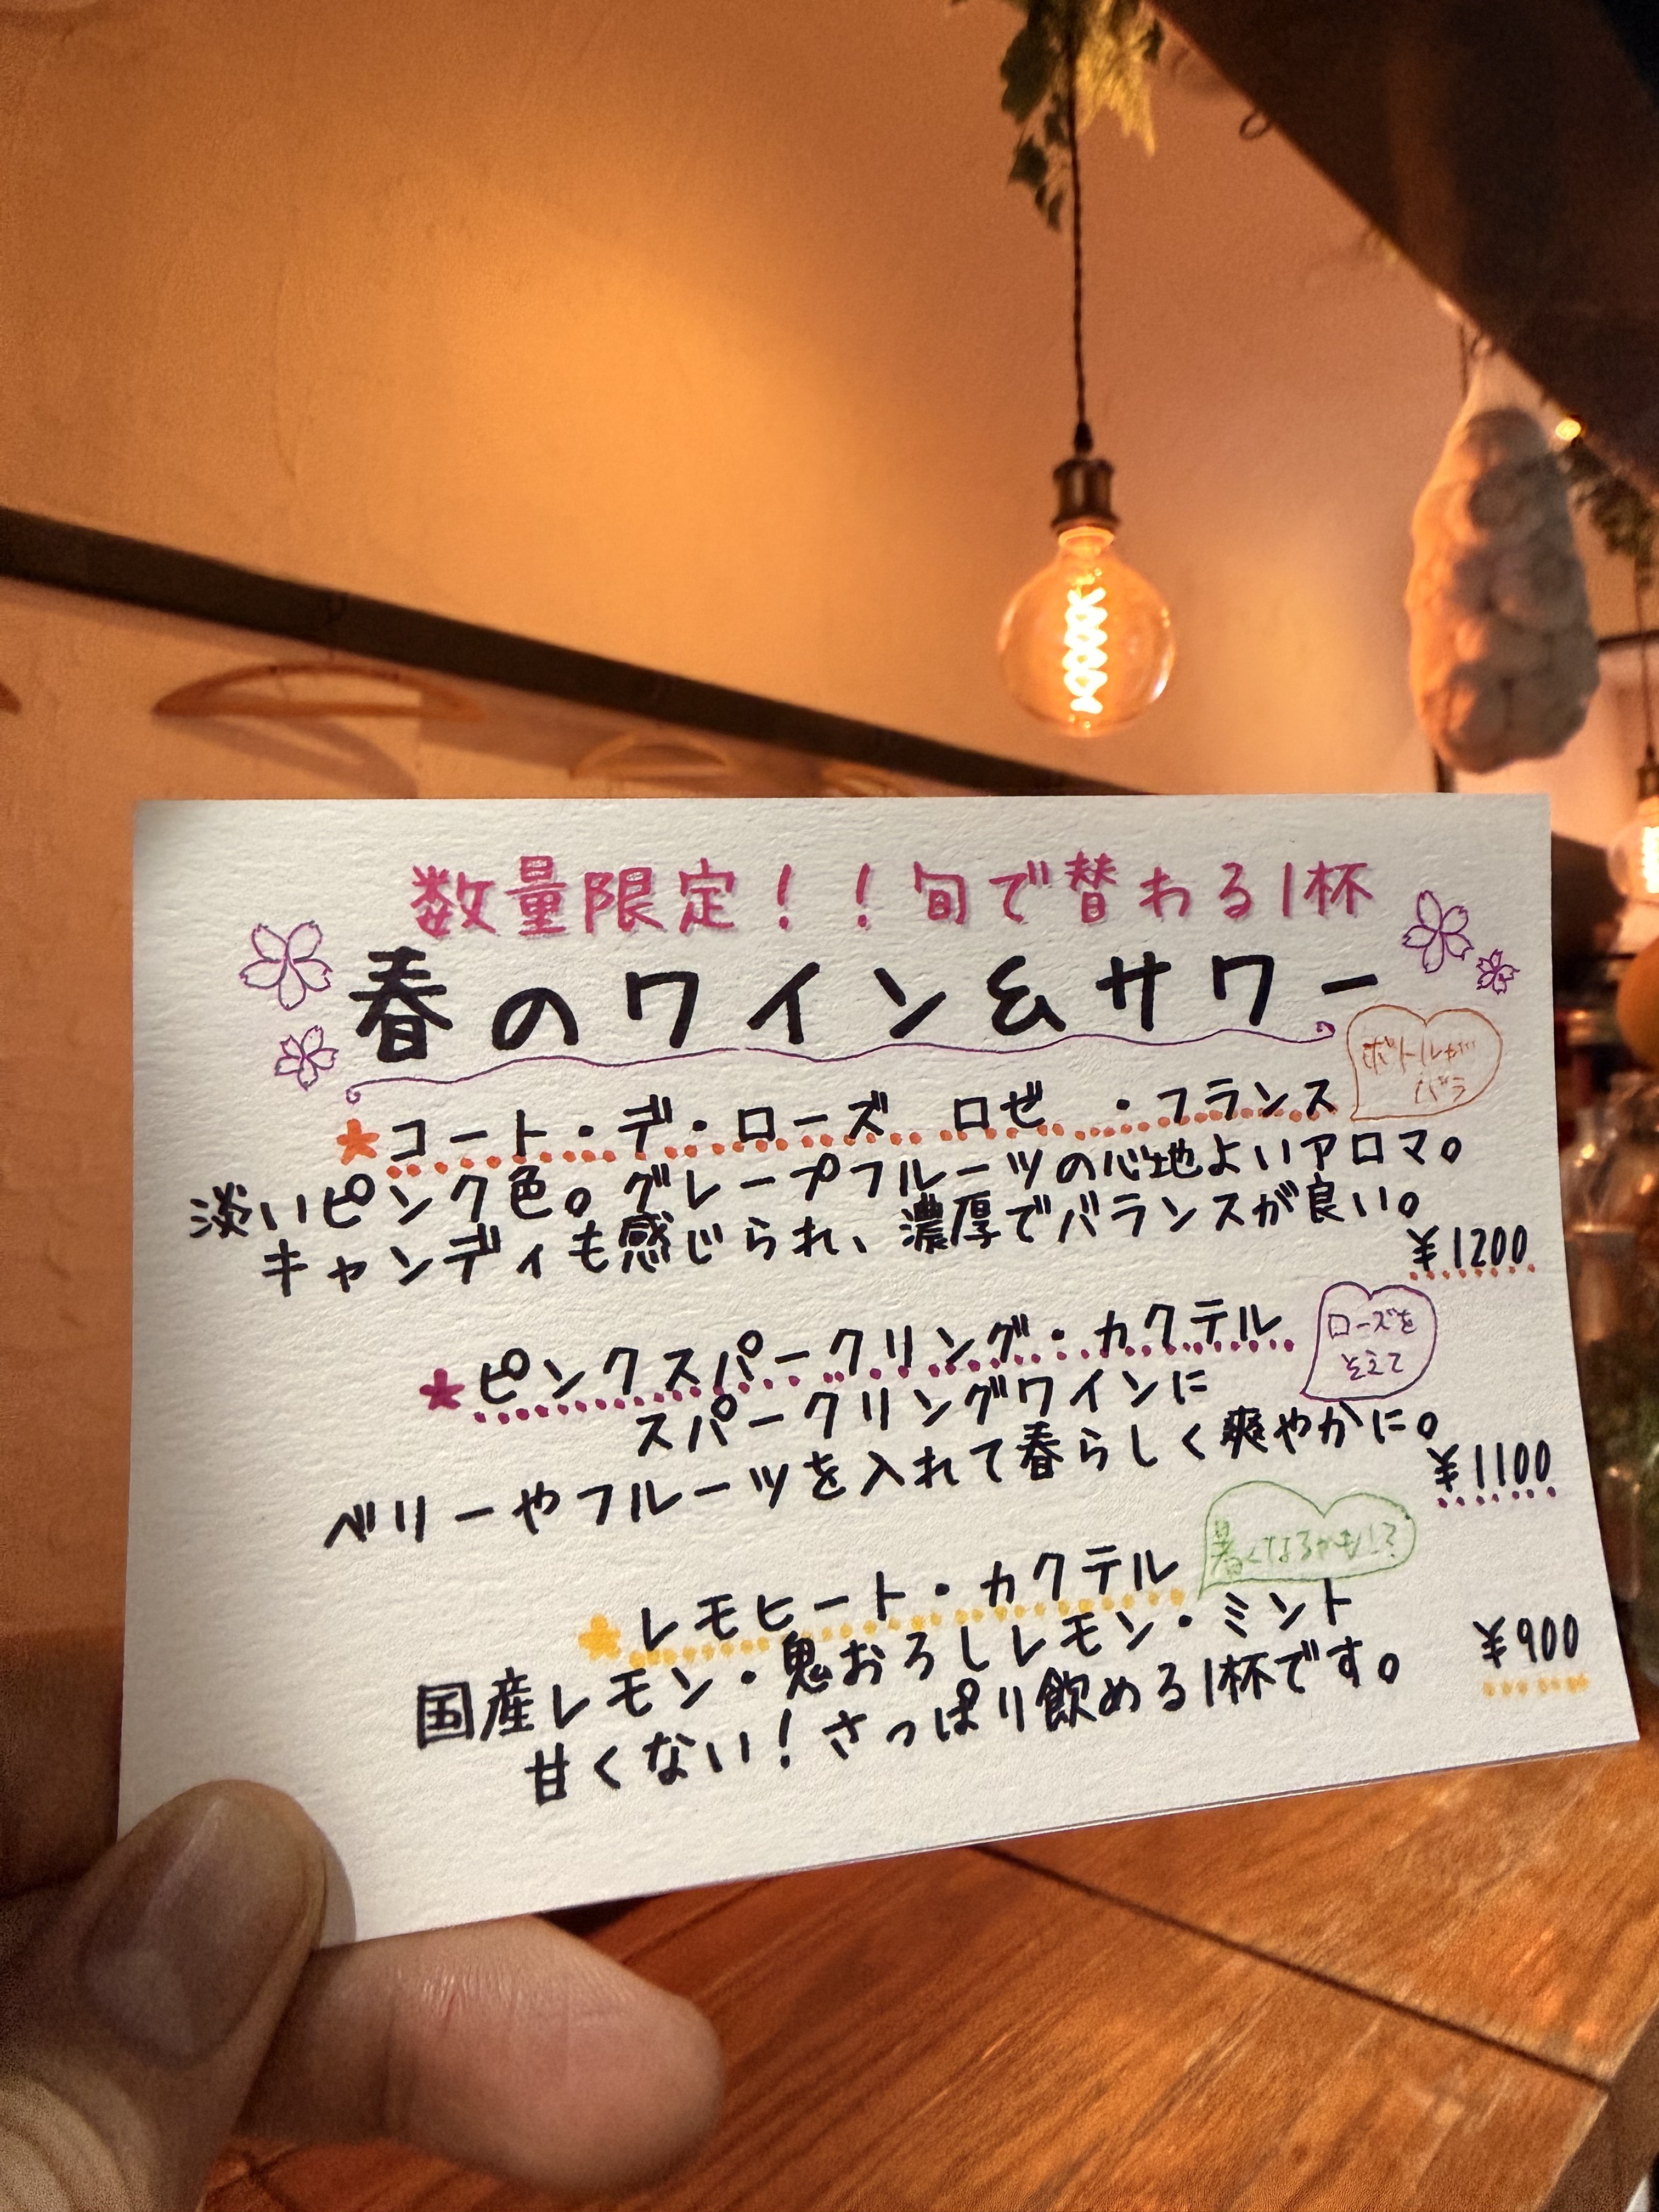 数量限定！！旬で替わる1杯
春のワイン&サワー
コート・デ・ローズ ロゼ ・フランス
ボトルが
バラ
淡いピンク色。グレープフルーツの心地よいアロマ。
キャンディも感じられ、濃厚でバランスが良い。
¥1200
ピンクスパークリング・カクテル
ローズを
そえて
スパークリングワインに
ベリーやフルーツを入れて春らしく爽やかに。
¥1100
レモヒート・カクテル
暑くなるかも
国産レモン・鬼おろしレモン・ミント
甘くない！さっぱり飲める1杯です。
¥900